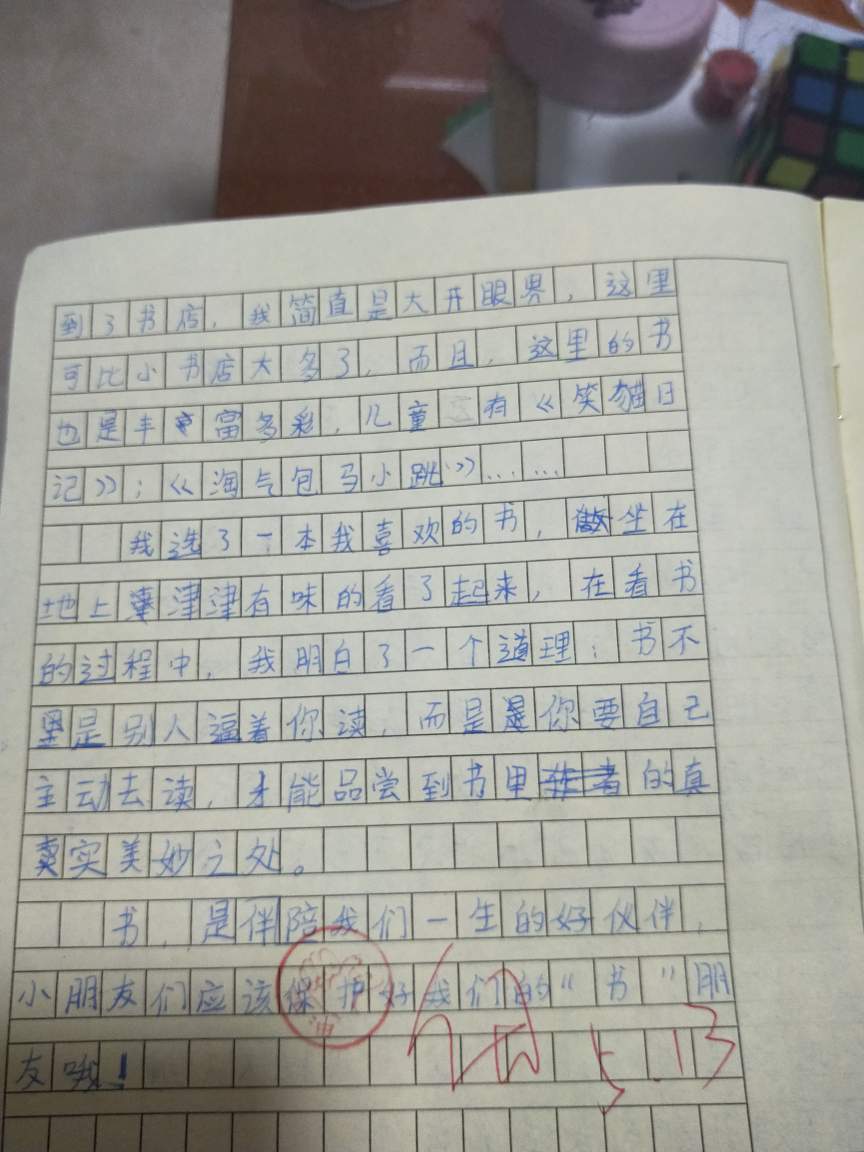 到了书店，我简直是大开眼界，这里
可比小书店大多了，而且，这里的书
也是丰富多彩，儿童有《笑猫日
记》；《淘气包马小跳》……
我选了一本我喜欢的书，坐在
地上津津有味的看了起来，在看书
的过程中，我明白了一个道理：书不
是别人逼着你读，而是你要自己
主动去读，才能品尝到书里的真
实美妙之处。
书，是伴陪我们一生的好伙伴，
小朋友们应该保护好我们的“书”朋
友哦！
5.13